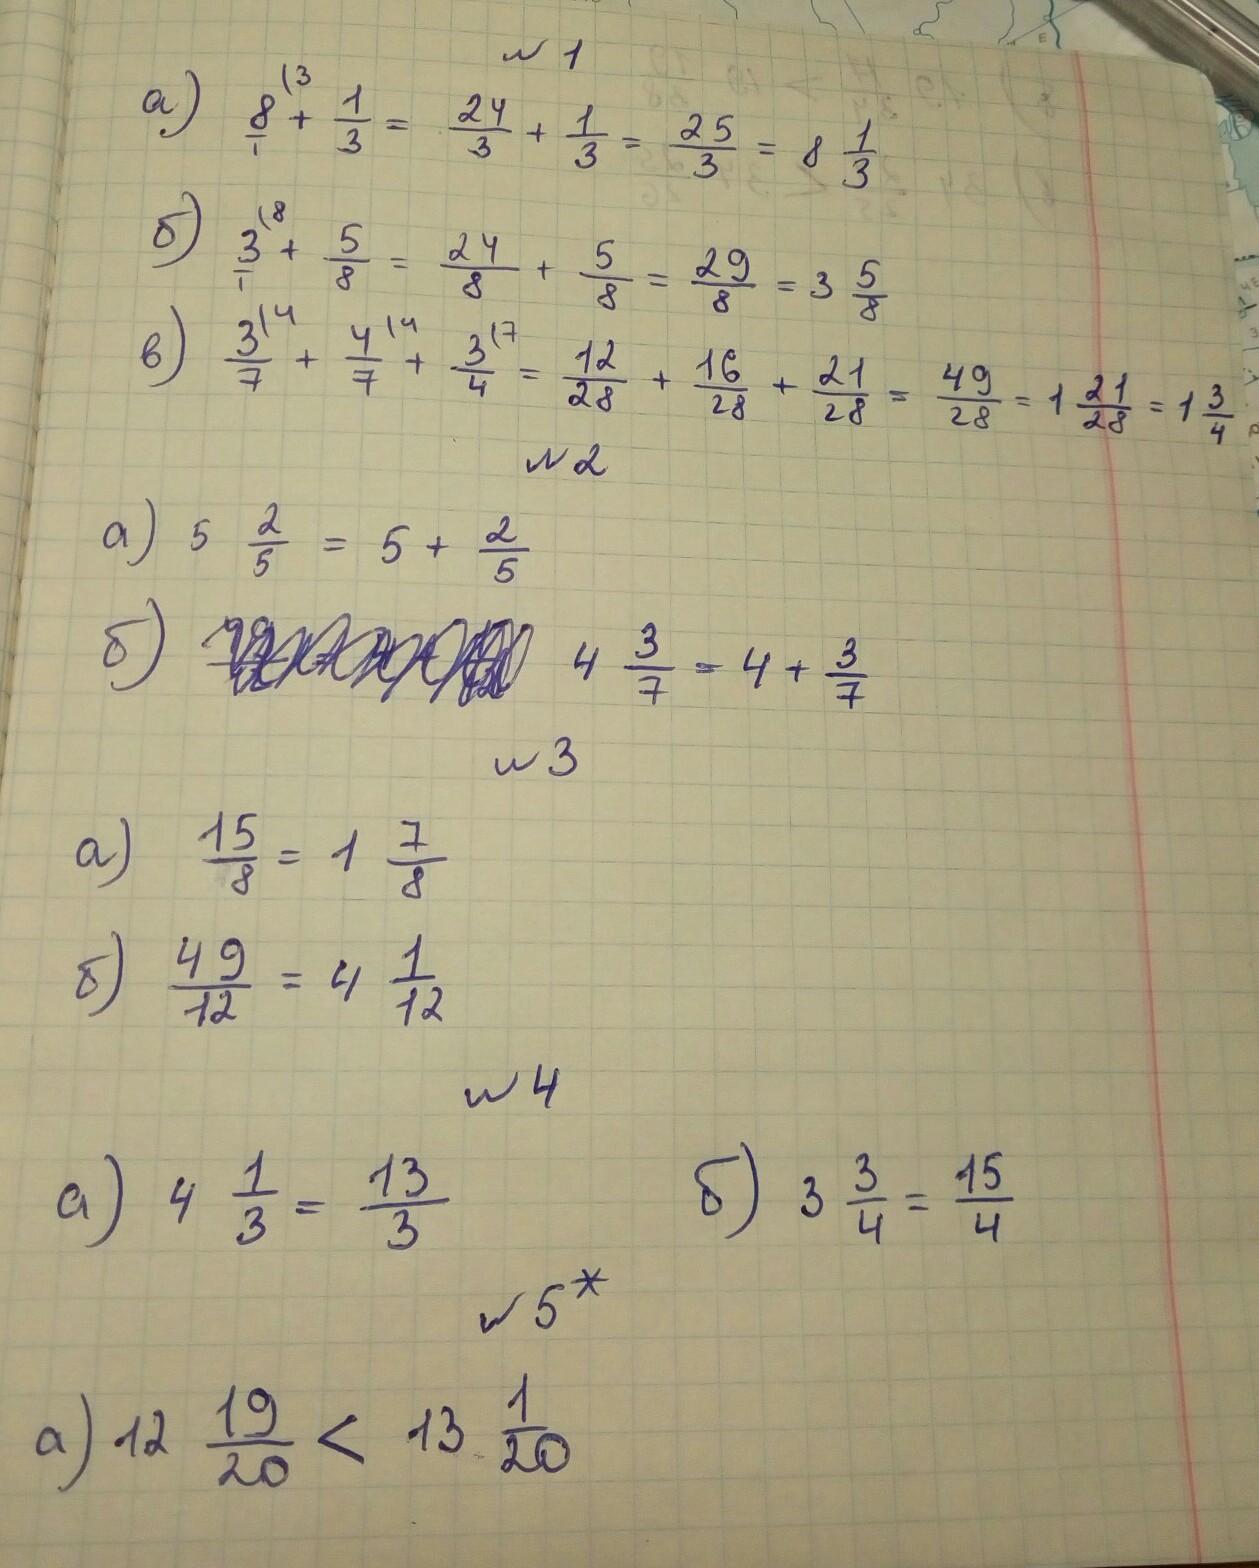 № 1
а) 8/1 (3 + 1/3 = 24/3 + 1/3 = 25/3 = 8 1/3
б) 3/1 (8 + 5/8 = 24/8 + 5/8 = 29/8 = 3 5/8
в) 3/7 (4 + 4/7 (4 + 3/4 (7 = 12/28 + 16/28 + 21/28 = 49/28 = 1 21/28 = 1 3/4
№ 2
а) 5 2/5 = 5 + 2/5
б) 4 3/7 = 4 + 3/7
№ 3
а) 15/8 = 1 7/8
б) 49/12 = 4 1/12
№ 4
а) 4 1/3 = 13/3 б) 3 3/4 = 15/4
№ 5*
а) 12 19/20 < 13 1/20